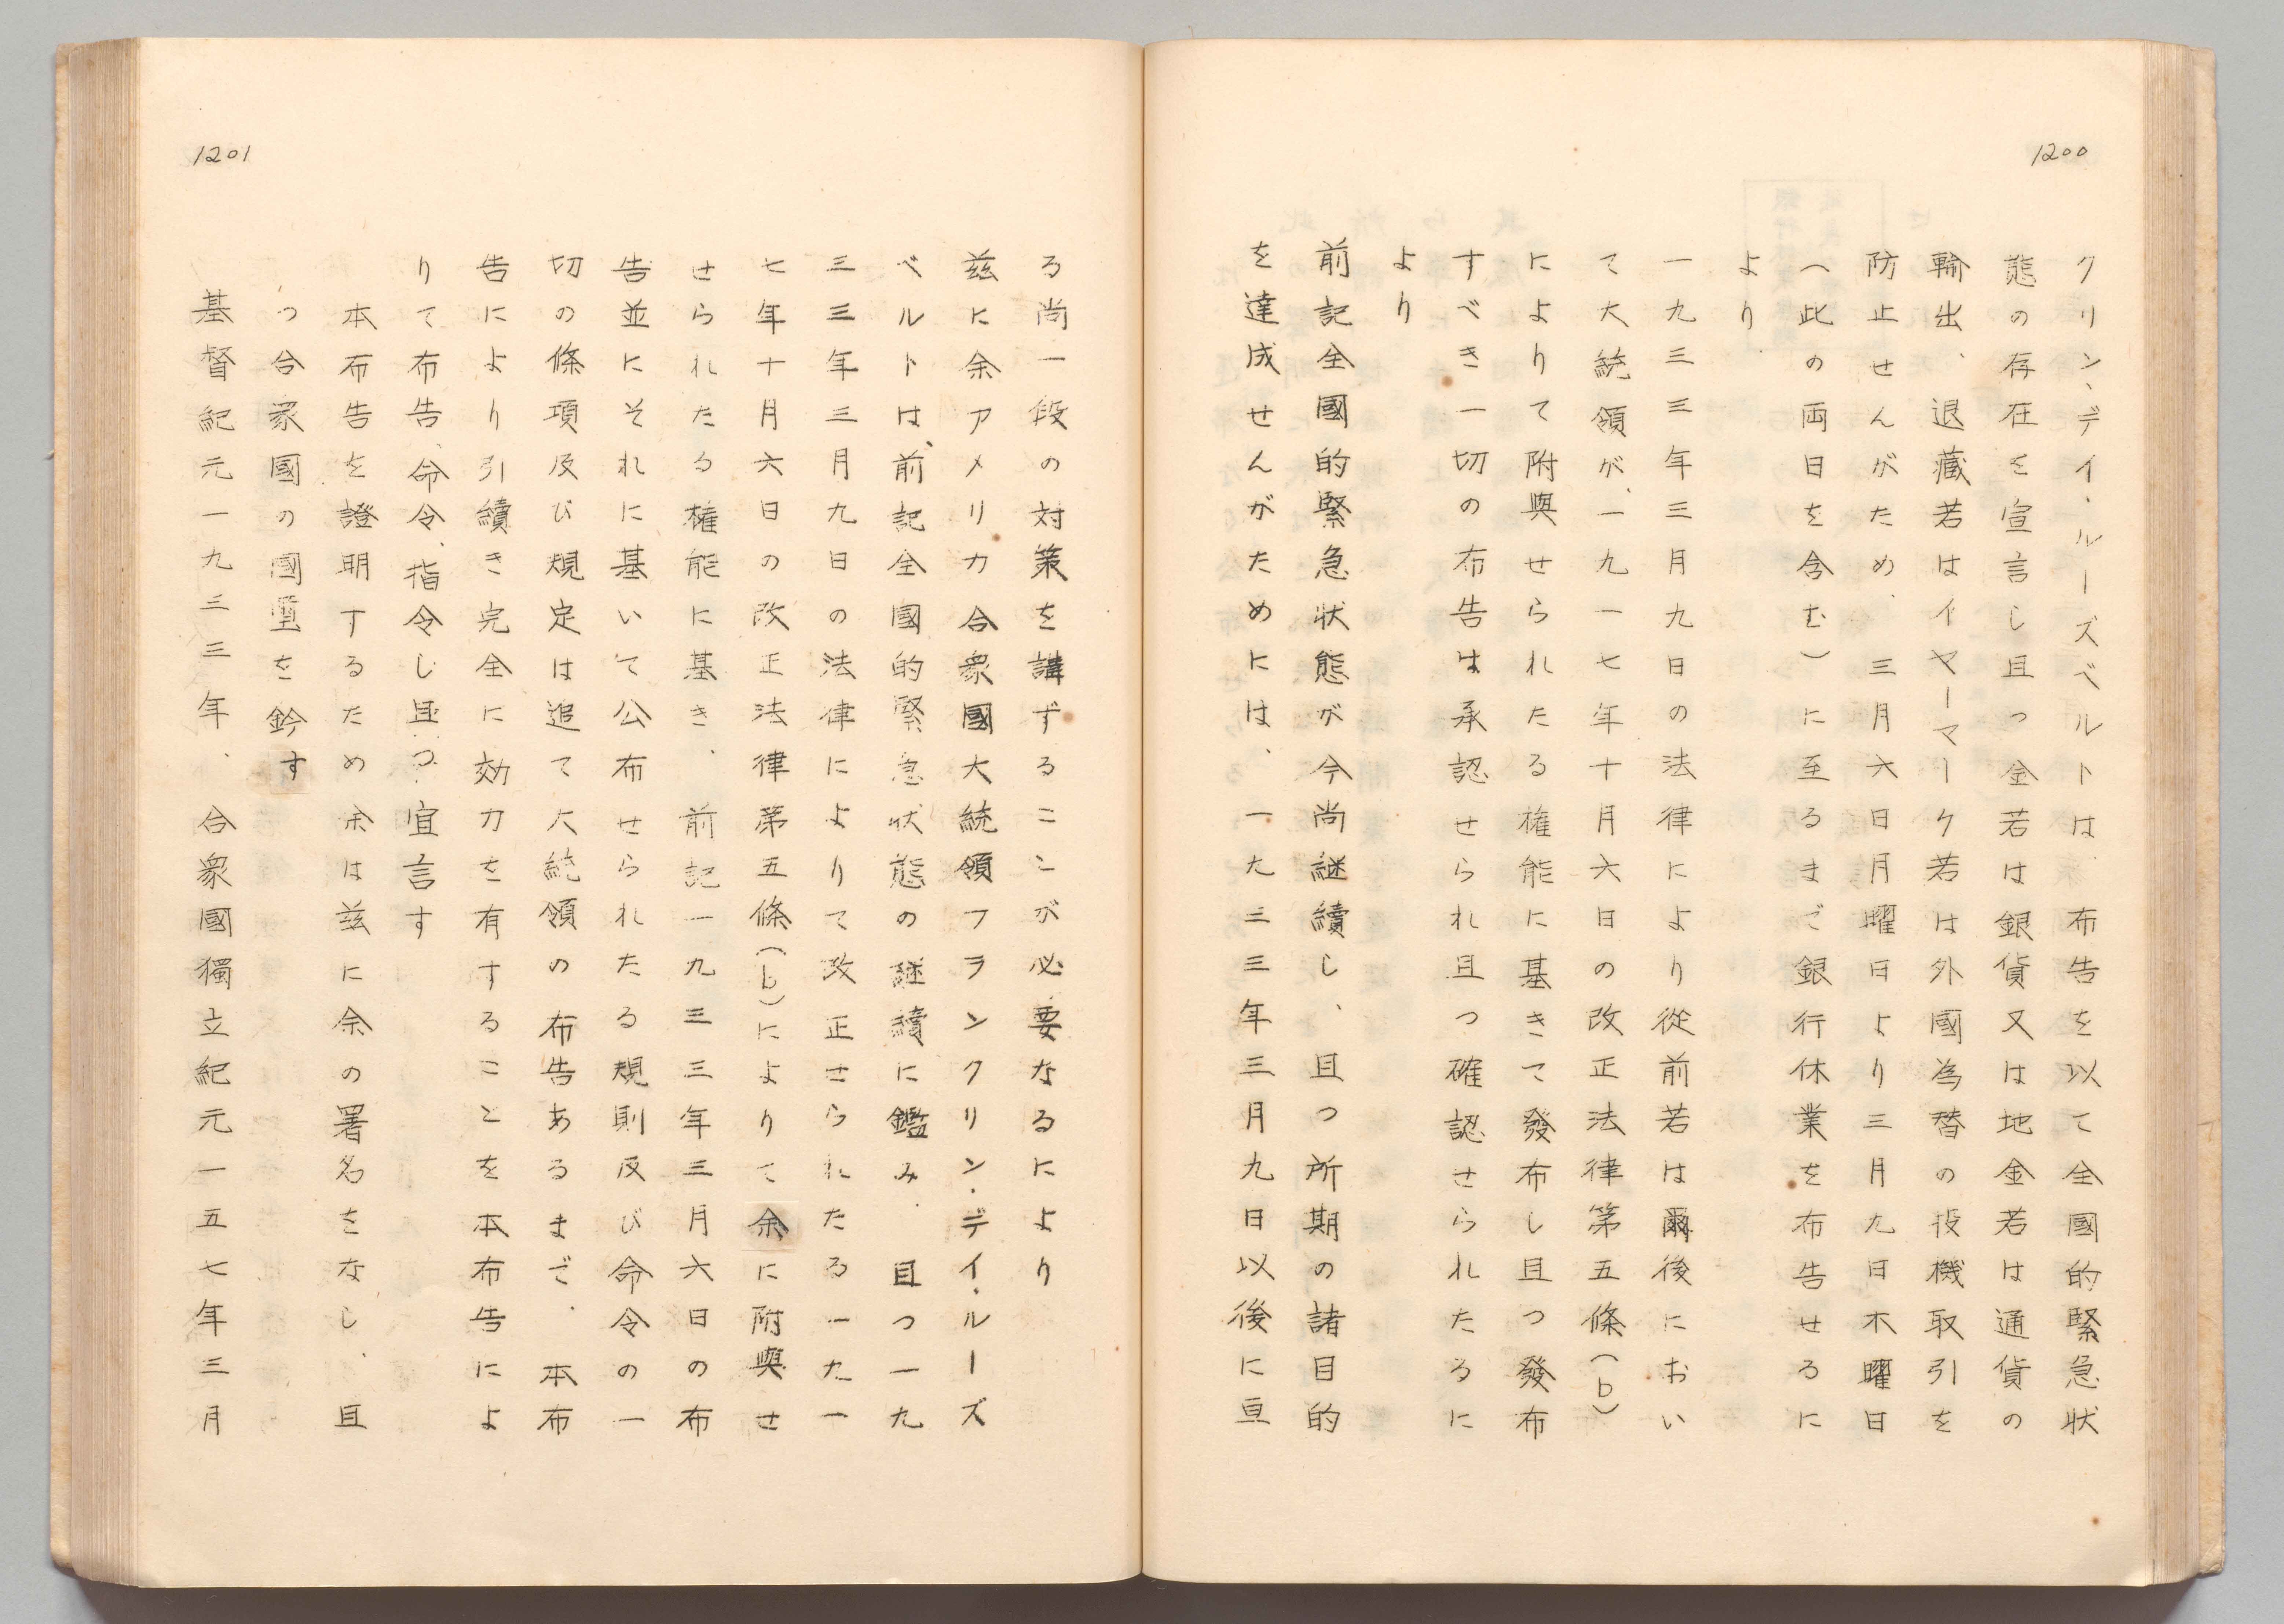 1200
クリン、デイ・ルーズベルトは、布告を以て全國的緊急狀
態の存在を宣言し且つ金若は銀貨又は地金若は通貨の
輸出、退藏若はイヤーマーク若は外國為替の投機取引を
防止せんがため、三月六日月曜日より三月九日木曜日
（此の両日を含む）に至るまで銀行休業を布告せるに
より
一九三三年三月九日の法律により從前若は爾後におい
て大統領が、一九一七年十月六日の改正法律第五條（b）
によりて附與せられたる権能に基きて發布し且つ發布
すべき一切の布告は承認せられ且つ確認せられたるに
より
前記全國的緊急状態が今尚継續し、且つ所期の諸目的
を達成せんがためには、一九三三年三月九日以後に亘
1201
る尚一段の対策を講ずることが必要なるにより
茲に余アメリカ合衆國大統領フランクリン・デイ・ルーズ
ベルトは、前記全國的緊急状態の継續に鑑み、且つ一九
三三年三月九日の法律によりて改正せられたる一九一
七年十月六日の改正法律第五條（b）によりて余に附與せ
せられたる権能に基き、前記一九三三年三月六日の布
告並にそれに基いて公布せられたる規則及び命令の一
切の條項及び規定は追て大統領の布告あるまで、本布
告により引續き完全に効力を有することを本布告によ
りて布告、命令、指令し且つ宣言す
本布告を證明するため余は茲に余の署名をなし、且
つ合衆國の國璽を鈐す
基督紀元一九三三年、合衆國獨立紀元一五七年三月